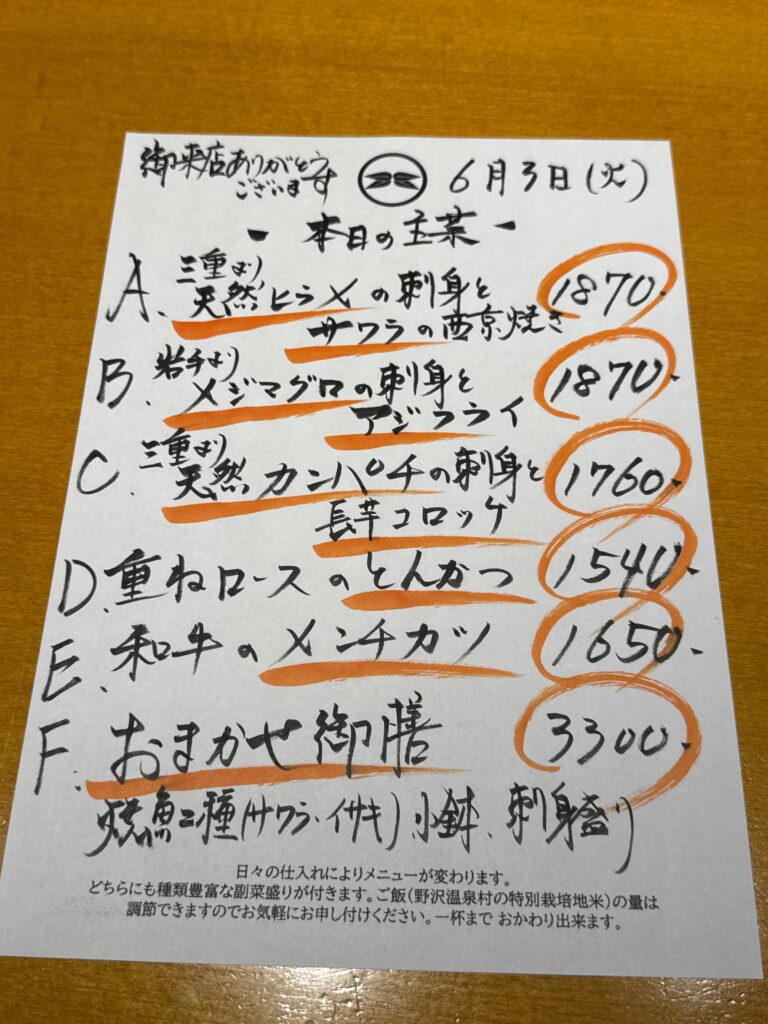 御来店ありがとう
ございます
6月3日(火)
- 本日の主菜 -
A、三重より
天然ヒラメの刺身と
サワラの西京焼き 1870-
B、岩手より
メジマグロの刺身と
アジフライ 1870-
C、三重より
天然カンパチの刺身と
長芋コロッケ 1760-
D、重ねロースのとんかつ 1540-
E、和牛のメンチカツ 1650-
F、おまかせ御膳 3300-
焼魚二種(サワラ・イサキ)、小鉢、刺身盛り
日々の仕入れによりメニューが変わります。
どちらにも種類豊富な副菜盛りが付きます。ご飯(野沢温泉村の特別栽培地米)の量は
調節できますのでお気軽にお申し付けください。一杯まで おかわり出来ます。